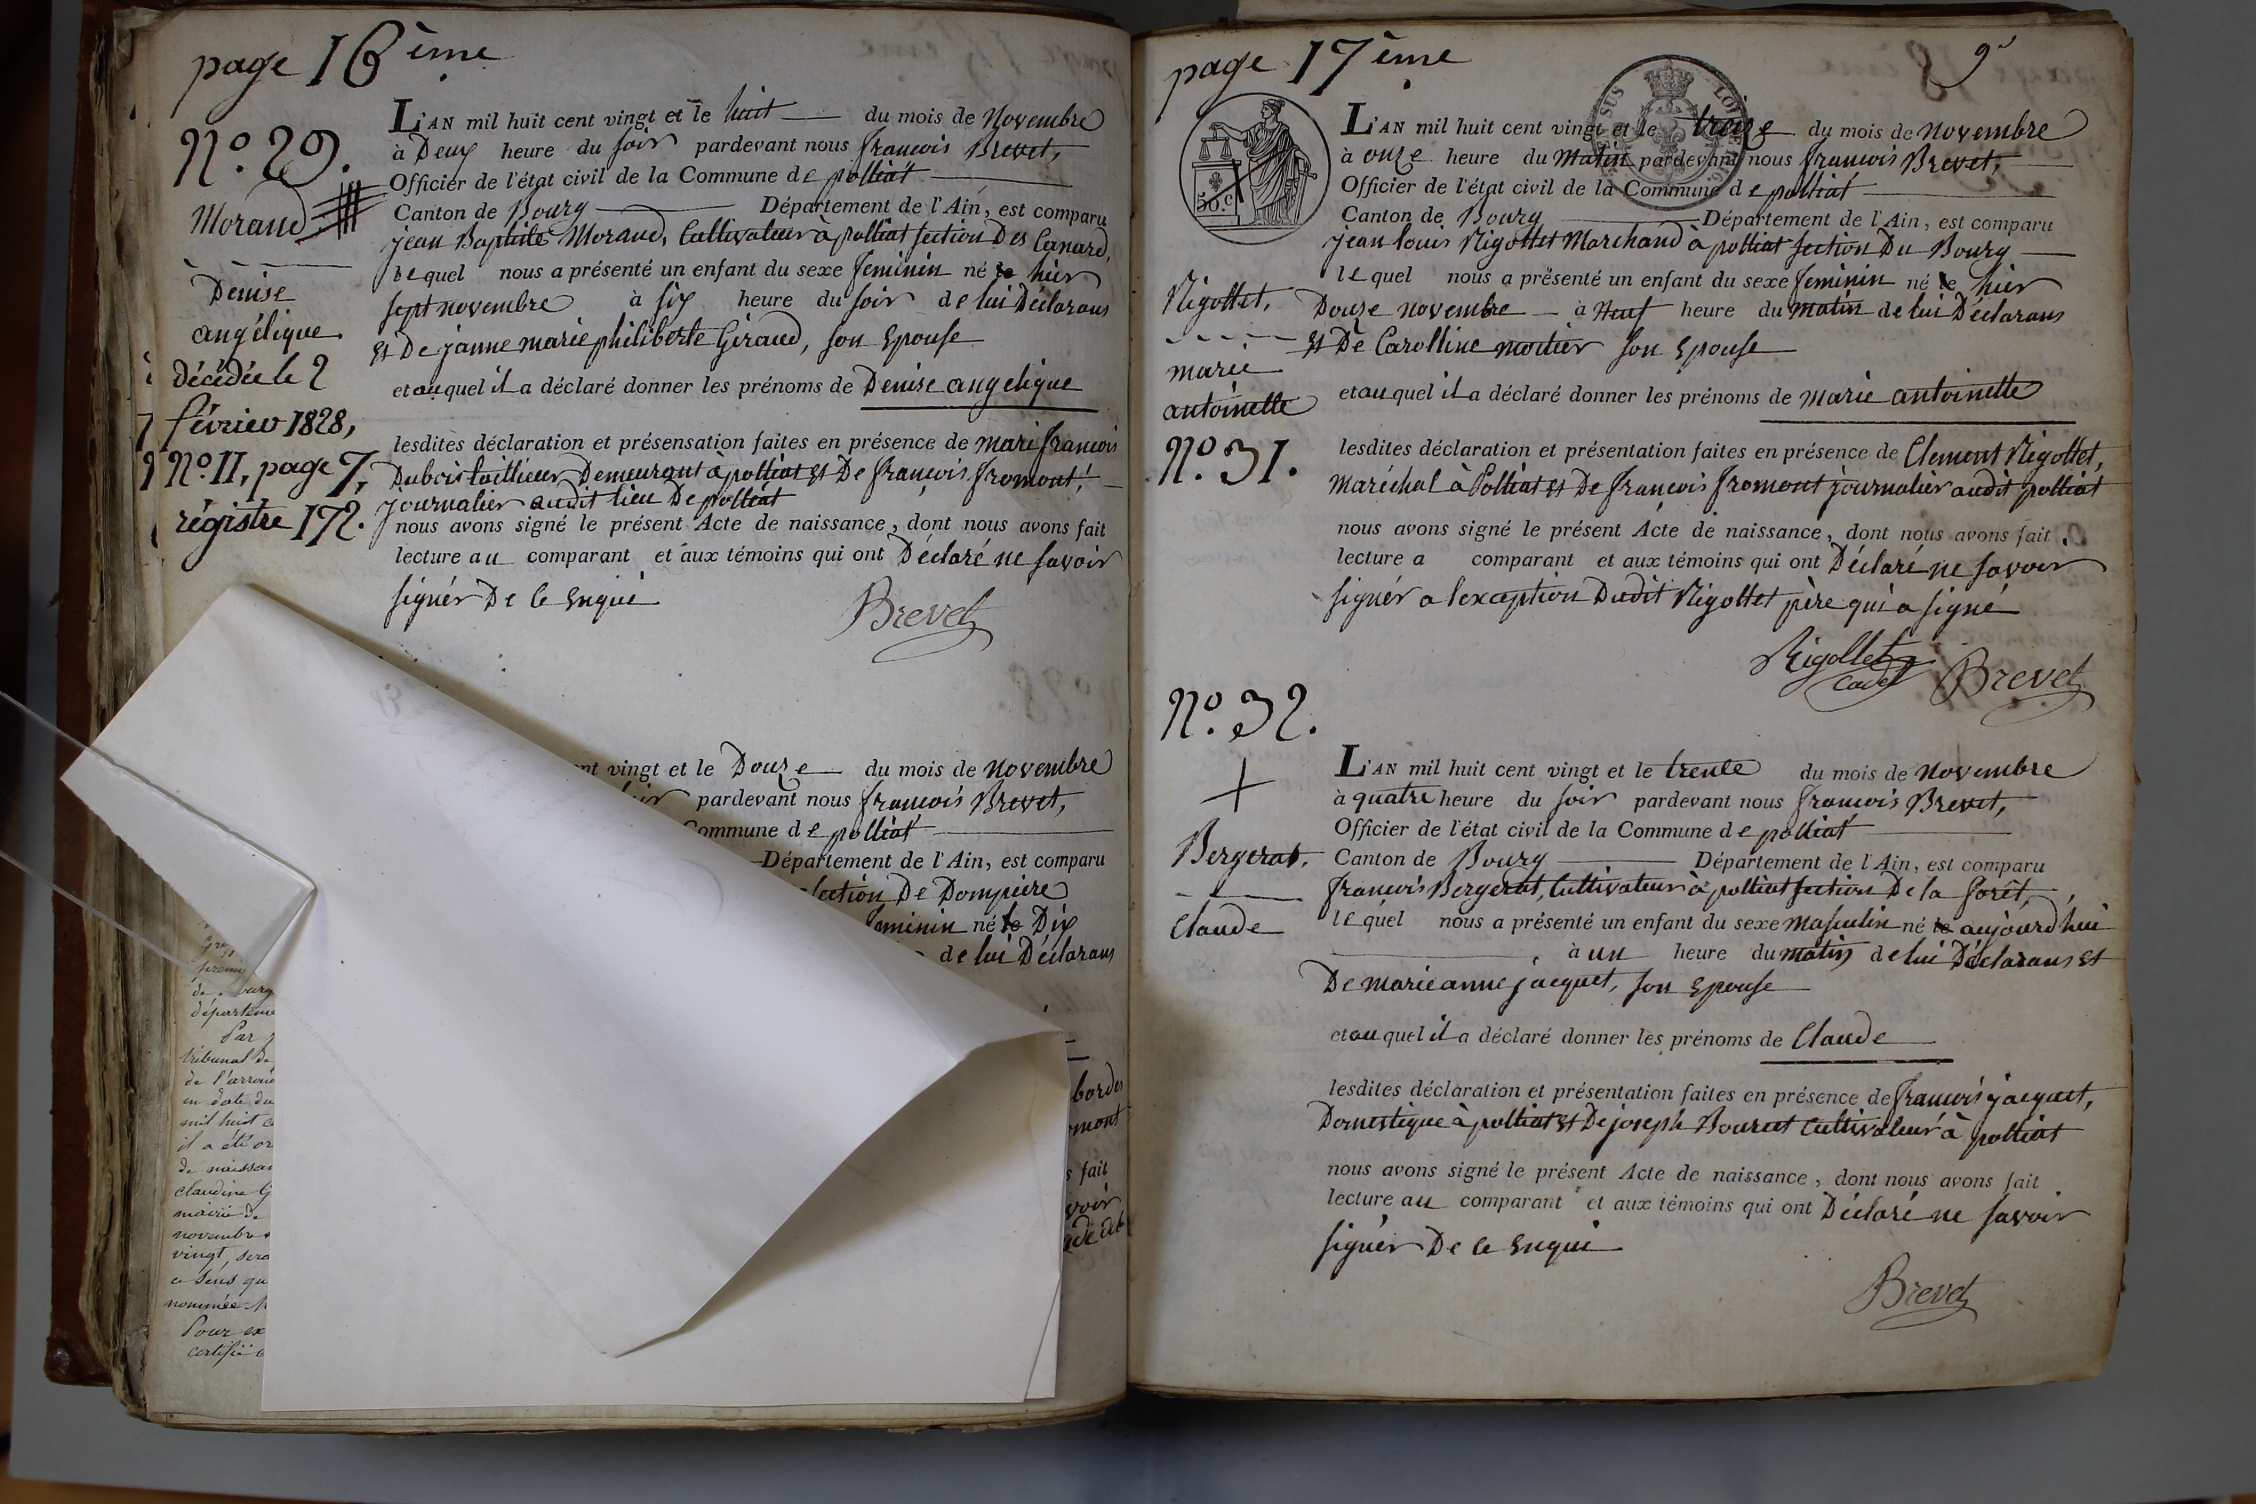 page 16ème
N.º 29.
Morand
Denise
angélique
décédée le 2
février 1828,
N.º II, page 7,
régistre 172.
L'AN mil huit cent vingt et le huit du mois de Novembre
à Deux heure du soir pardevant nous françois Brevet,
Officier de l'état civil de la Commune de polliat
Canton de Bourg Département de l'Ain, est comparu
jean Baptiste Morand, Cultivateur à polliat section Des Canard,
lequel nous a présenté un enfant du sexe feminin né le hier
sept novembre à six heure du soir de lui Déclarans
et De janne marie philiberte Giraud, son Epouse
et auquel il a déclaré donner les prénoms de Denise angelique
lesdites déclaration et présensation faites en présence de mari françois
Dubois taillieur Demeurant à polliat et De françois fromont,
journalier audit lieu De polliat
nous avons signé le présent Acte de naissance, dont nous avons fait
lecture au comparant et aux témoins qui ont Déclaré ne savoir
signér De ce Enquis
Brevet
nt vingt et le Douze du mois de Novembre
pardevant nous françois Brevet,
Commune de polliat
Département de l'Ain, est comparu
section De Dompiere
feminin né le Dix
de lui Déclarans
bordes
omont
s fait
voir
de
départeme
Par
tribunal de
de l'arron
en date du
mil huit c
il a été or
de naissan
claudine G
mairie de
novembre
vingt, sera
ce sens qu
nommée M
Pour ex
certifié
page 17ème
9
50.c
L'AN mil huit cent vingt et le treize du mois de novembre
à onze heure du Matin pardevant nous françois Brevet,
Officier de l'état civil de la Commune de polliat
Canton de Bourg Département de l'Ain, est comparu
jean louis Rigottet Marchand à polliat section Du Bourg
lequel nous a présenté un enfant du sexe feminin né le hier
Douze novembre à Neuf heure du matin de lui Déclarans
et De Carolline moitier son Epouse
et auquel il a déclaré donner les prénoms de marie antoinette
lesdites déclaration et présentation faites en présence de Clement Rigottet,
Maréchal à Polliat et De françois fromont journalier audit polliat
nous avons signé le présent Acte de naissance, dont nous avons fait
lecture a comparant et aux témoins qui ont Déclaré ne savoir
signér a l'exception Dudit Rigottet père qui a signé
Rigollet
cadet
Brevet
Rigottet,
marie
antoinette
N.º 31.
N.º 32.
Bergerat,
Claude
L'AN mil huit cent vingt et le trente du mois de Novembre
à quatre heure du soir pardevant nous françois Brevet,
Officier de l'état civil de la Commune de polliat
Canton de Bourg Département de l'Ain, est comparu
françois Bergerat, Cultivateur à polliat section De la forêt,
lequel nous a présenté un enfant du sexe masculin né le aujourd'hui
à un heure du matin de lui Déclarans et
De marieanne jacquet, son Epouse
et auquel il a déclaré donner les prénoms de Claude
lesdites déclaration et présentation faites en présence de françois jacquet,
Domestique à polliat et De joseph Bouret Cultivateur à polliat
nous avons signé le présent Acte de naissance, dont nous avons fait
lecture au comparant et aux témoins qui ont Déclaré ne savoir
signér De ce Enquis
Brevet